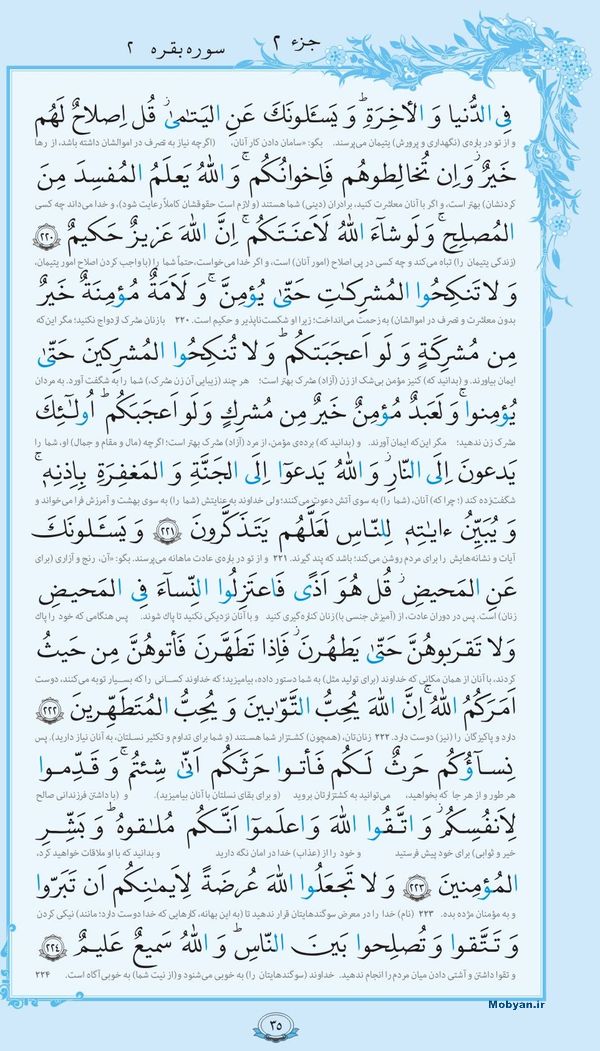 جزء ۲
سوره بقره ۲
فِی الدُّنیا وَ الأخِرَةِ ۗ وَ یَسـَٔلونَكَ عَنِ الیَتـٰمىٰ ۖ قُل اِصلاحٌ لَهُم
و از تو در باره‌ی (نگهداری و پرورش) یتیمان می‌پرسند. بگو: «سامان دادن کار آنان، (اگرچه نیاز به تصرف در اموالشان داشته باشد، از رها
خَیرٌ ۖ وَ اِن تُخالِطوهُم فَاِخوانُكُم ۚ وَ اللهُ یَعلَمُ المُفسِدَ مِنَ
کردنشان) بهتر است، و اگر با آنان معاشرت کنید، برادران (دینی) شما هستند (و لازم است حقوقشان کاملاً رعایت شود)، و خدا می‌داند چه کسی
المُصلِحِ ۚ وَ لَو شاءَ اللهُ لَاَعنَتَكُم ۚ اِنَّ اللهَ عَزیزٌ حَكیمٌ ﴿۲۲۰﴾
(زندگی یتیمان را) تباه می‌کند و چه کسی در پی اصلاح (امور آنان) است، و اگر خدا می‌خواست، حتماً شما را (با واجب کردن اصلاح امور یتیمان،
وَ لا تَنكِحُوا المُشرِكـٰتِ حَتّىٰ یُؤمِنَّ ۚ وَ لَاَمَةٌ مُؤمِنَةٌ خَیرٌ
بدون معاشرت و تصرف در اموالشان) به زحمت می‌انداخت؛ زیرا او شکست‌ناپذیر و حکیم است. ۲۲۰ با زنان مشرک ازدواج نکنید؛ مگر این‌که
مِن مُشرِكَةٍ وَ لَو اَعجَبَتكُم ۗ وَ لا تُنكِحُوا المُشرِكینَ حَتّىٰ
ایمان بیاورند. و (بدانید که) کنیز مؤمن بی‌شک از زن (آزاد) مشرک بهتر است؛ هر چند (زیبایی آن زن مشرک،) شما را به شگفت آورد. به مردان
یُؤمِنوا ۚ وَ لَعَبدٌ مُؤمِنٌ خَیرٌ مِن مُشرِكٍ وَ لَو اَعجَبَكُم ۗ اُولـٰئِكَ
مشرک زن ندهید؛ مگر این‌که ایمان آورند. و (بدانید که) برده‌ی مؤمن، از مرد (آزاد) مشرک بهتر است؛ اگرچه (مال و مقام و جمال) او، شما را
یَدعونَ اِلَى النّارِ ۖ وَ اللهُ یَدعوا اِلَى الجَنَّةِ وَ المَغفِرَةِ بِاِذنِهٖ ۖ
شگفت‌زده کند (؛ چرا که) آنان، (شما را) به سوی آتش دعوت می‌کنند؛ ولی خداوند به عنایتش (شما را) به سوی بهشت و آمرزش فرا می‌خواند و
وَ یُبَیِّنُ ءایـٰتِهٖ لِلنّاسِ لَعَلَّهُم یَتَذَكَّرونَ ﴿۲۲۱﴾ وَ یَسـَٔلونَكَ
آیات و نشانه‌هایش را برای مردم روشن می‌کند؛ باشد که پند گیرند. ۲۲۱ و از تو در باره‌ی عادت ماهانه می‌پرسند. بگو: «آن، رنج و آزاری (برای
عَنِ المَحیضِ ۖ قُل هُوَ اَذًى فَاعتَزِلُوا النِّساءَ فِی المَحیضِ
زنان) است. پس در دوران عادت، از (آمیزش جنسی با) زنان کناره‌گیری کنید و با آنان نزدیکی نکنید تا پاک شوند. پس هنگامی که خود را پاک
وَلا تَقرَبوهُنَّ حَتّىٰ یَطهُرنَ ۖ فَاِذا تَطَهَّرنَ فَأتوهُنَّ مِن حَیثُ
کردند، با آنان از همان مکانی که خداوند (برای تولید مثل) به شما دستور داده، بیامیزید؛ که خداوند کسانی را که بسیار توبه می‌کنند، دوست
اَمَرَكُمُ اللهُ ۚ اِنَّ اللهَ یُحِبُّ التَّوّابینَ وَ یُحِبُّ المُتَطَهِّرینَ ﴿۲۲۲﴾
دارد و پاکیزگان را (نیز) دوست دارد. ۲۲۲ زنان‌تان، (همچون) کشتزار شما هستند (و شما برای تداوم و تکثیر نسلتان، به آنان نیاز دارید). پس
نِساؤُكُم حَرثٌ لَكُم فَأتوا حَرثَكُم اَنّىٰ شِئتُم ۖ وَ قَدِّموا
هر طور و از هر جا که بخواهید، می‌توانید به کشتزارتان بروید (و برای بقای نسلتان با آنان بیامیزید). و (با داشتن فرزندانی صالح
لِاَنفُسِكُم ۚ وَ اتَّقُوا اللهَ وَ اعلَموا اَنَّكُم مُلـٰقوهُ ۗ وَ بَشِّرِ
خیر و ثوابی) برای خود پیش فرستید و خود را از (عذاب) خدا در امان نگه دارید و بدانید که با او ملاقات خواهید کرد،
المُؤمِنینَ ﴿۲۲۳﴾ وَ لا تَجعَلُوا اللهَ عُرضَةً لِاَیمـٰنِكُم اَن تَبَرّوا
و به مؤمنان مژده بده. ۲۲۳ (نام) خدا را در معرض سوگندهایتان قرار ندهید تا (به این بهانه، کارهایی که خدا دوست دارد؛ مانند) نیکی کردن
وَ تَتَّقوا وَ تُصلِحوا بَینَ النّاسِ ۗ وَ اللهُ سَمیعٌ عَلیمٌ ﴿۲۲۴﴾
و تقوا داشتن و آشتی دادن میان مردم را انجام ندهید. خداوند (سوگندهایتان را) به خوبی می‌شنود و (از نیت شما) به خوبی آگاه است. ۲۲۴
Mobyan.ir
۳۵